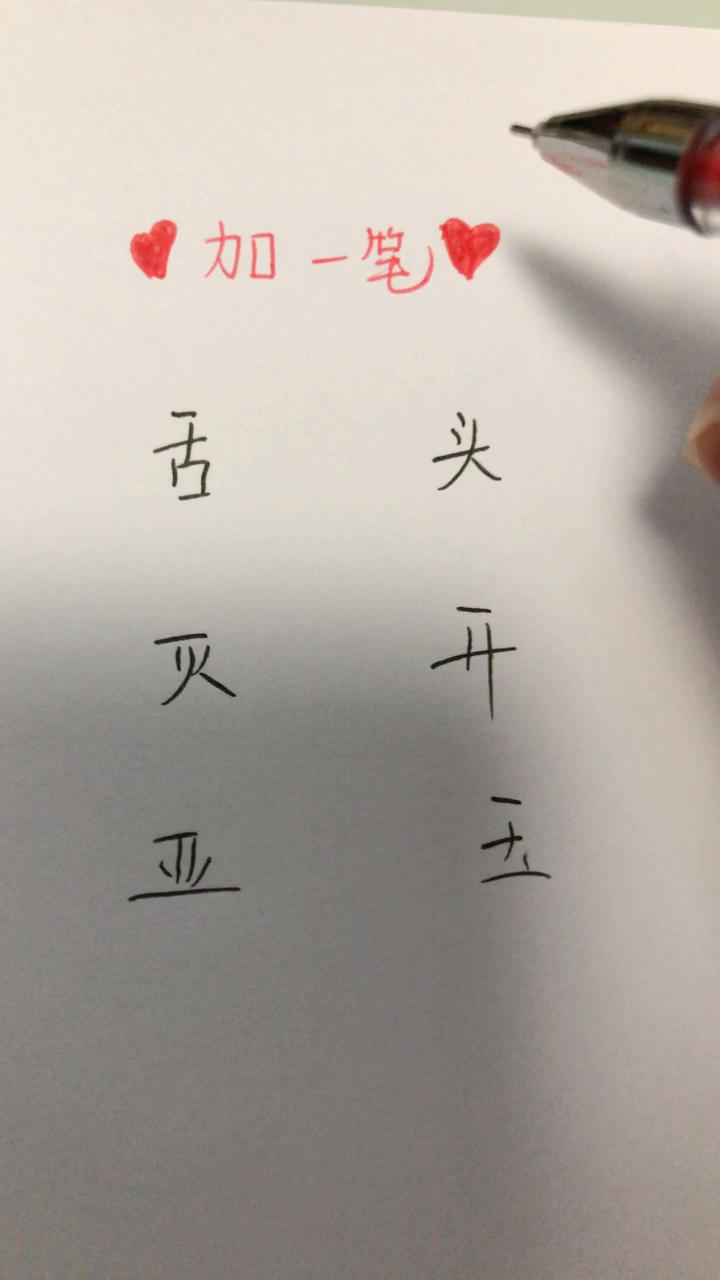 加一笔
舌 头
灭 开
亚 玉